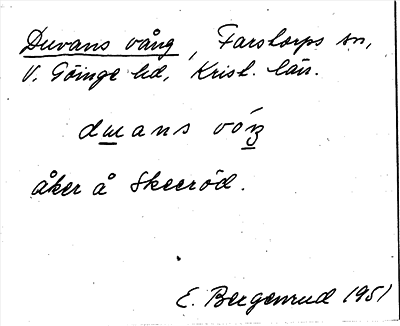 Duvans vång, Farstorps sn,
V. Göinge hd, Krist. län.
åker å Skeeröd.
E. Bergenrud 1951